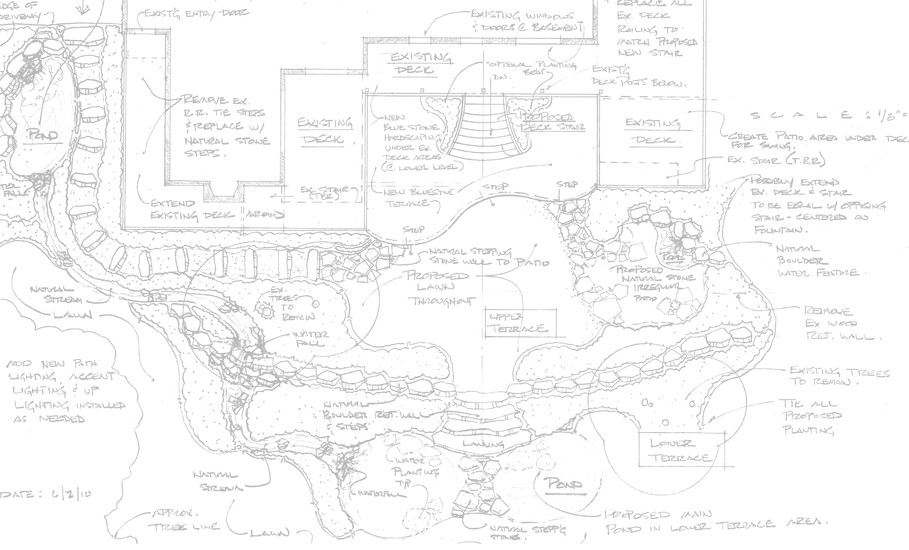 EDGE OF
DRIVEWAY
EXIST'G ENTRY DOOR
EXISTING WINDOWS
& DOORS @ BASEMENT
REPLACE ALL
EX. DECK
RAILING TO
MATCH PROPOSED
NEW STAIR
EXISTING
DECK
OPTIONAL PLANTING
EXIST'G
DECK POSTS BELOW.
POND
REMOVE EX.
R.R. TIE STEPS
& REPLACE W/
NATURAL STONE
STEPS.
EXISTING
DECK
NEW
BLUESTONE
HARDSCAPING
UNDER EX.
DECK AREAS
(@ LOWER LEVEL)
PROPOSED
DECK STAIR
EXISTING
DECK
SCALE: 1/8"=
CREATE PATIO AREA UNDER DECK
FOR SWING.
EX. STAIR (T.B.R)
EX. STAIR
NEW BLUESTONE
TERRACE
STEP
STEP
STEP
EXTEND
EXISTING DECK AROUND
POSSIBLY EXTEND
EX. DECK & STAIR
TO BE EQUAL W/ OPPOSING
STAIR - CENTERED ON
FOUNTAIN.
NATURAL STEPPING
STONE WALL TO PATIO
NATURAL
BOULDER
WATER FEATURE.
PROPOSED
LAWN
THROUGHOUT
PROPOSED
NATURAL STONE
IRREGULAR
PATIO
NATURAL
STREAM
LAWN
EX.
TREES
TO
REMAIN
WATER
FALL
UPPER
TERRACE
REMOVE
EX WOOD
RET. WALL.
ADD NEW PATH
LIGHTING, ACCENT
LIGHTING & UP
LIGHTING INSTALLED
AS NEEDED
EXISTING TREES
TO REMAIN.
NATURAL
BOULDER RET. WALL
& STEPS
TIE ALL
PROPOSED
PLANTING
LANDING
LOWER
TERRACE
NATURAL
STREAM
WATER
PLANTING
TYP
WATERFALL
POND
DATE: 6/2/10
APPROX.
TREE LINE
LAWN
NATURAL STEPP'G
STONE.
PROPOSED MAIN
POND IN LOWER TERRACE AREA.